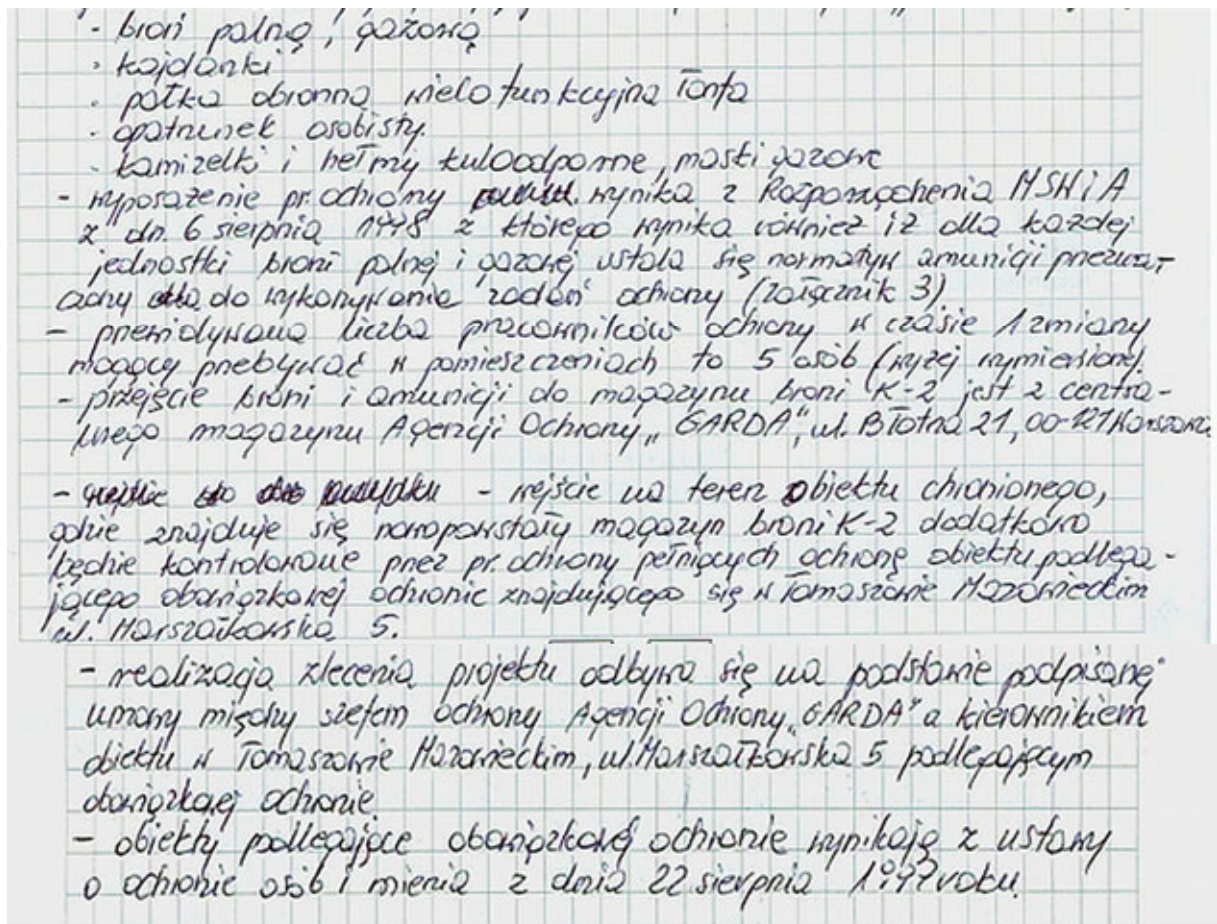 - broń palną, gazową
· kajdanki
· pałka obronna wielofunkcyjna Tonfa
· opatrunek osobisty.
· kamizelki i hełmy kuloodporne, maski gazowe
- wyposażenie pr. ochrony wynika z Rozporządzenia MSWiA
z dn. 6 sierpnia 1998 z którego wynika również iż dla każdej
jednostki broni palnej i gazowej ustala się normatyw amunicji przezna-
czony do wykonywania zadań ochrony (załącznik 3)
- przewidywana liczba pracowników ochrony w czasie 1 zmiany
mogący przebywać w pomieszczeniach to 5 osób (wyżej wymienione).
- przejęcie broni i amunicji do magazynu broni K-2 jest z centra-
lnego magazynu Agencji Ochrony „GARDA", ul. Błotna 21, 00-121 Warszawa
- wejście na teren obiektu chronionego,
gdzie znajduje się nowopowstały magazyn broni K-2 dodatkowo
będzie kontrolowane przez pr. ochrony pełniących ochronę obiektu podlega-
jącego obowiązkowej ochronie znajdującego się w Tomaszowie Mazowieckim
ul. Marszałkowska 5.
- realizacja zlecenia projektu odbywa się na podstawie podpisanej
umowy między szefem ochrony Agencji Ochrony „GARDA" a kierownikiem
obiektu w Tomaszowie Mazowieckim, ul. Marszałkowska 5 podlegającym
obowiązkowej ochronie.
- obiekty podlegające obowiązkowej ochronie wynikają z ustawy
o ochronie osób i mienia z dnia 22 sierpnia 1997 roku.